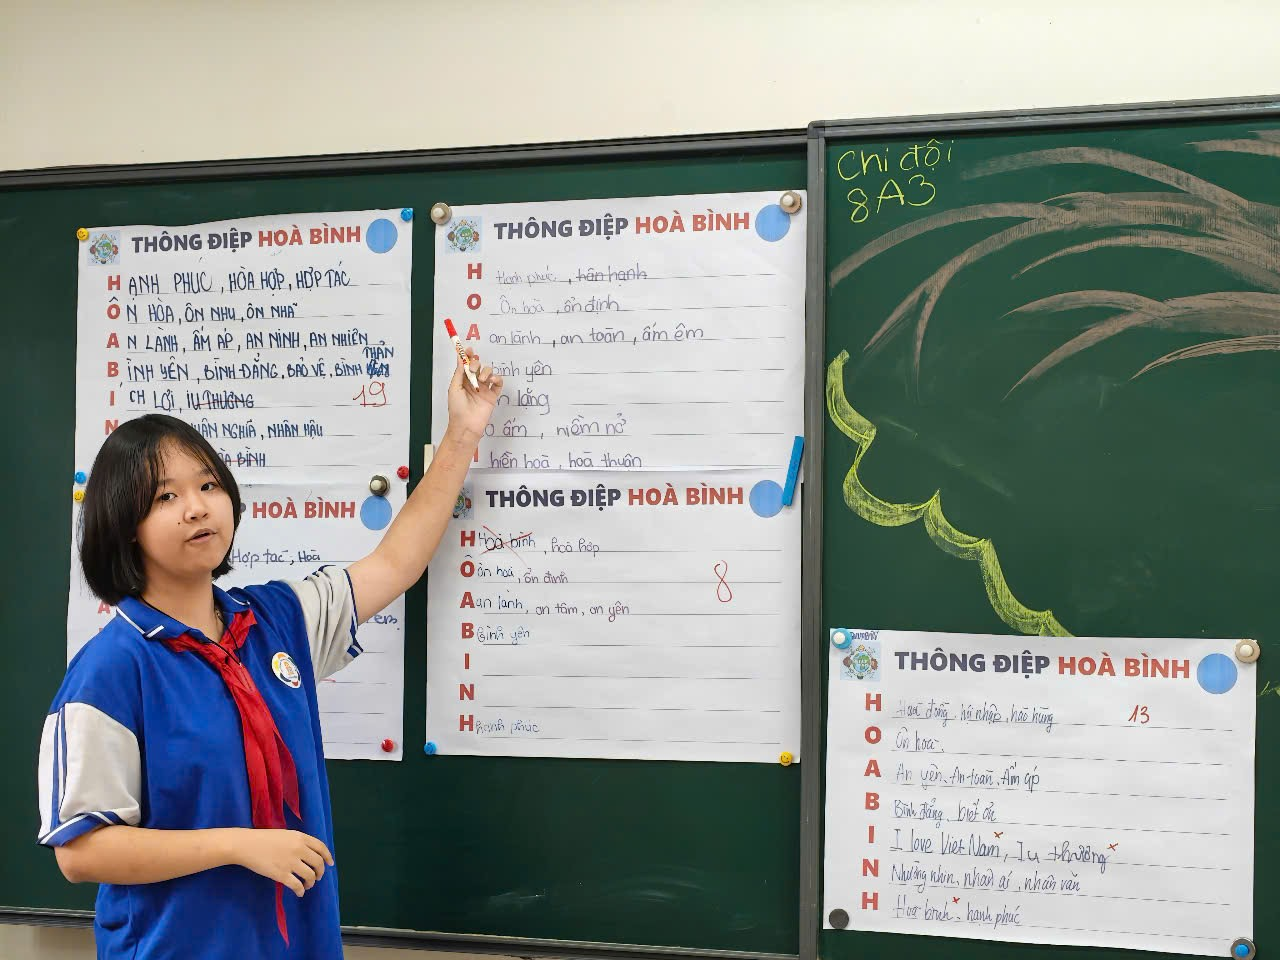 THÔNG ĐIỆP HOÀ BÌNH
HẠNH PHÚC, HÒA HỢP, HỢP TÁC
ÔN HÒA, ÔN NHU, ÔN NHÃ
AN LÀNH, ẤM ÁP, AN NINH, AN NHIÊN
BÌNH YÊN, BÌNH ĐẲNG, BẢO VỆ, BÌNH THẢN
ÍCH LỢI, IU THƯƠNG
19
N NHÂN NGHĨA, NHÂN HẬU
BÌNH
THÔNG ĐIỆP HOÀ BÌNH
H Hạnh phúc, hân hạnh
O Ôn hoà, ổn định
A an lành, an toàn, ấm êm
bình yên
n lặng
o ấm, niềm nở
hiền hoà, hoà thuận
P HOÀ BÌNH
Hợp tác, Hoà
A
THÔNG ĐIỆP HOÀ BÌNH
H Hoà bình, hoà hợp
Ô ôn hoà, ổn định
8
A an lành, an tâm, an yên
B Bình yên
I
N
H hạnh phúc
Chi đội
8A3
THÔNG ĐIỆP HOÀ BÌNH
H Hoà đồng, hội nhập, hào hùng
13
O Ôn hoà
A An yên, An toàn, Ấm áp
B Bình đẳng, biết ơn
I I love Việt Nam, Iu thương
N Nhường nhịn, nhân ái, nhân văn
H Hoà bình, hạnh phúc